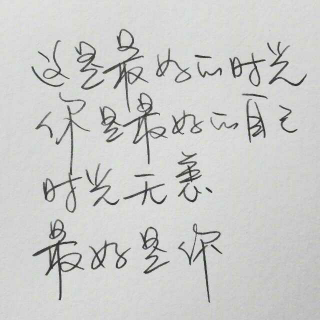 这是最好的时光
你是最好的自己
时光无恙
最好是你